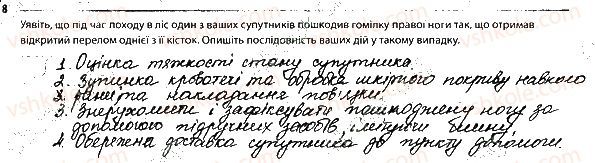 8
Уявіть, що під час походу в ліс один з ваших супутників пошкодив гомілку правої ноги так, що отримав
відкритий перелом однієї з її кісток. Опишіть послідовність ваших дій у такому випадку.
1. Оцінка тяжкості стану супутника.
2. Зупинка кровотечі та обробка шкірного покриву навколо
рани та накладання пов'язки.
3. Знерухомити і зафіксувати пошкоджену ногу за
допомогою підручних засобів, імітуючи шину.
4. Обережна доставка супутника до пункту допомоги.